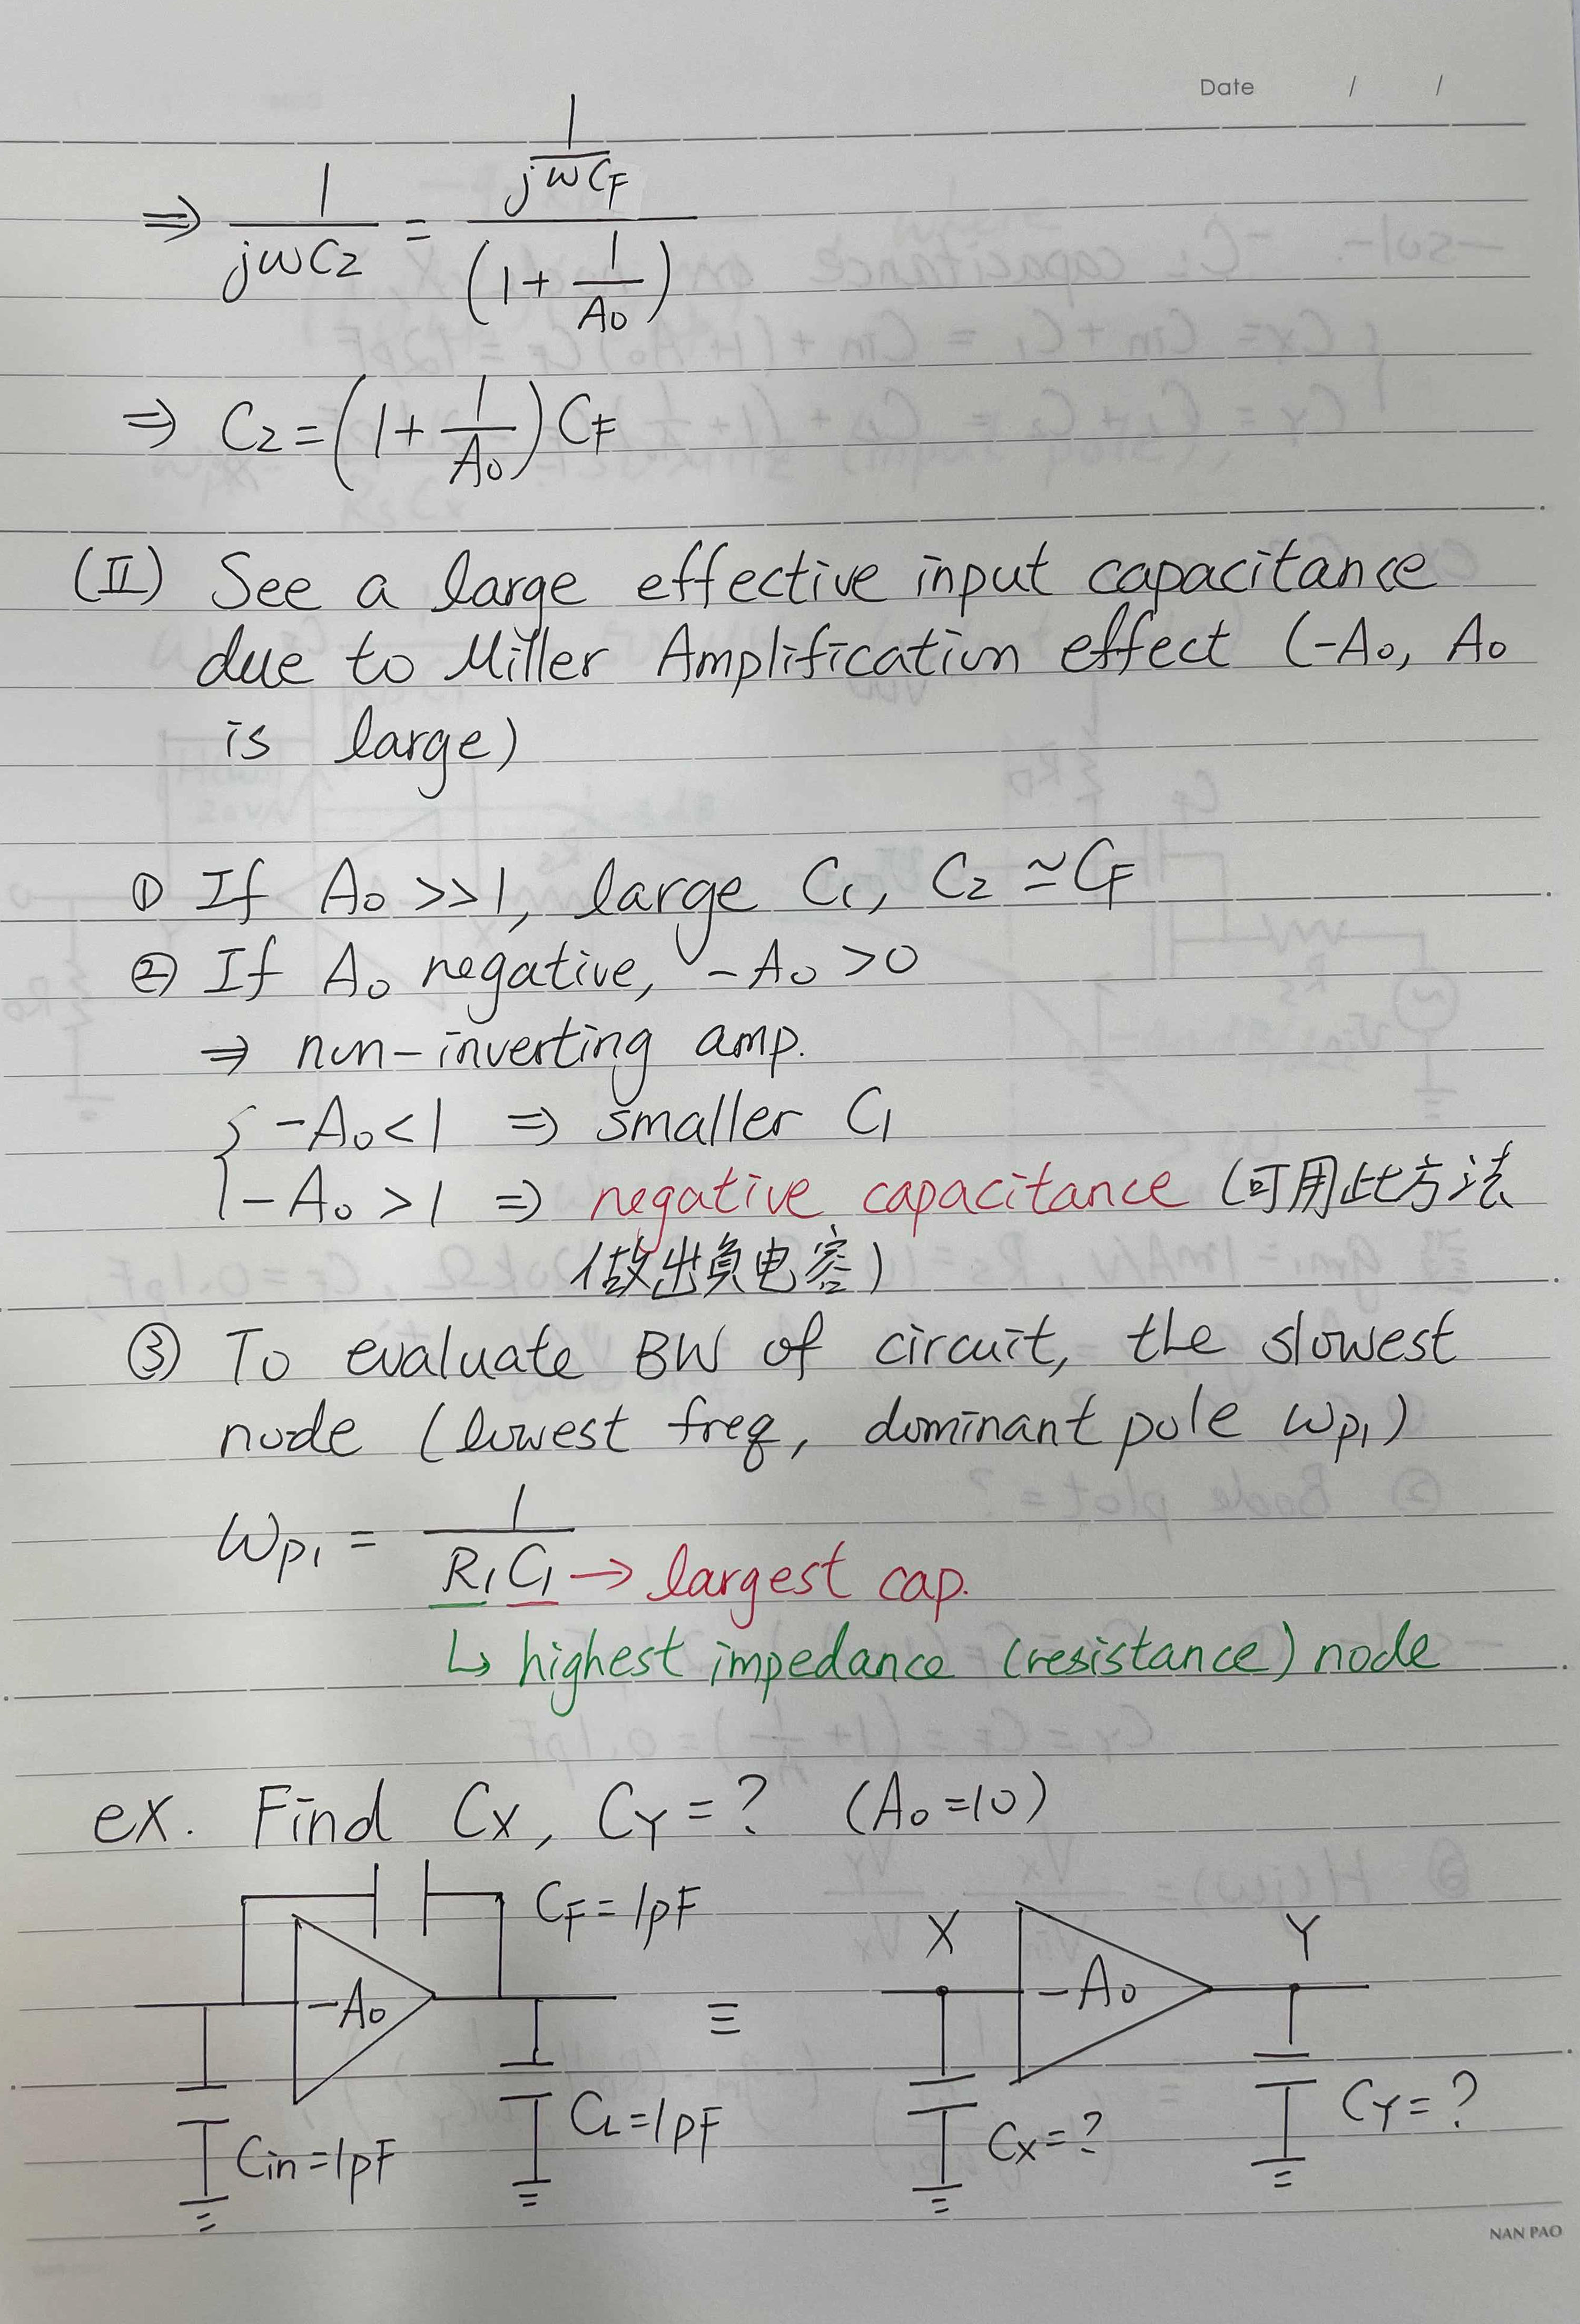 Date / /
⇒ 1/(jωC2) = (1/(jωCF))/(1+1/A0)
⇒ C2=(1+1/A0)CF
(II) See a large effective input capacitance
due to Miller Amplification effect (-A0, A0
is large)
① If A0 >>1, large C1, C2 ≃CF
② If A0 negative, -A0 >0
⇒ non-inverting amp.
{ -A0<1 ⇒ smaller C1
-A0 >1 ⇒ negative capacitance (可用此方法
做出負电容)
③ To evaluate BW of circuit, the slowest
node (lowest freq, dominant pole ωp1)
ωp1 = 1/(R1C1) → largest cap.
↳ highest impedance (resistance) node
ex. Find CX, CY=? (A0=10)
CF=1pF
X Y
-A0 ≡ -A0
Cin=1pF CL=1pF CX=? CY=?
NAN PAO